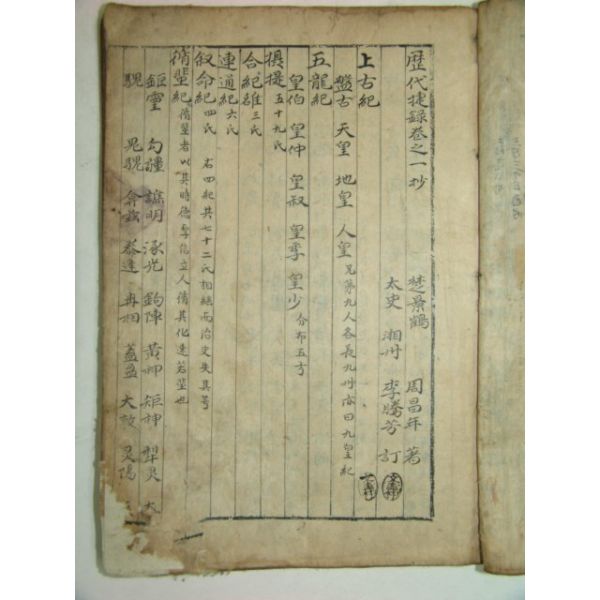 歷代捷錄卷之一抄
楚景鶴 周昌年 著
太史 湘州 李騰芳 訂
上古紀
盤古 天皇 地皇 人皇 兄弟九人各長九州亦曰九皇紀
五龍紀
皇伯 皇仲 皇叔 皇季 皇少 分布五方
攝提 五十九氏
合紀雒 三氏
連通紀 六氏
叙命紀 四氏 右四紀共七十二氏相繼而治史失其号
循蜚紀 循蜚者以其時德厚信立人循其化速若蜚也
鉅靈 勾疆 譙明 涿光 鉤陣 黃神 矩神 犂灵 大
騩 鬼騩 弇玆 泰逢 冉相 蓋盈 大敦 灵陽